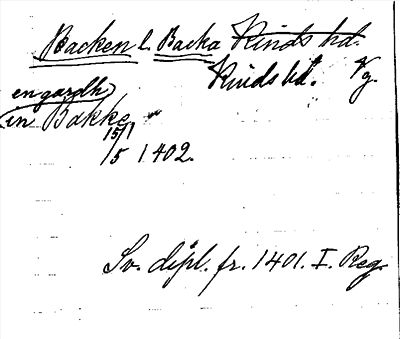 Backen l. Backa Kinds hd.
Kinds hd. Vg.
en gardh
in Bakke
15/1
/5 1402.
Sv. dipl. fr. 1401. I. Reg.